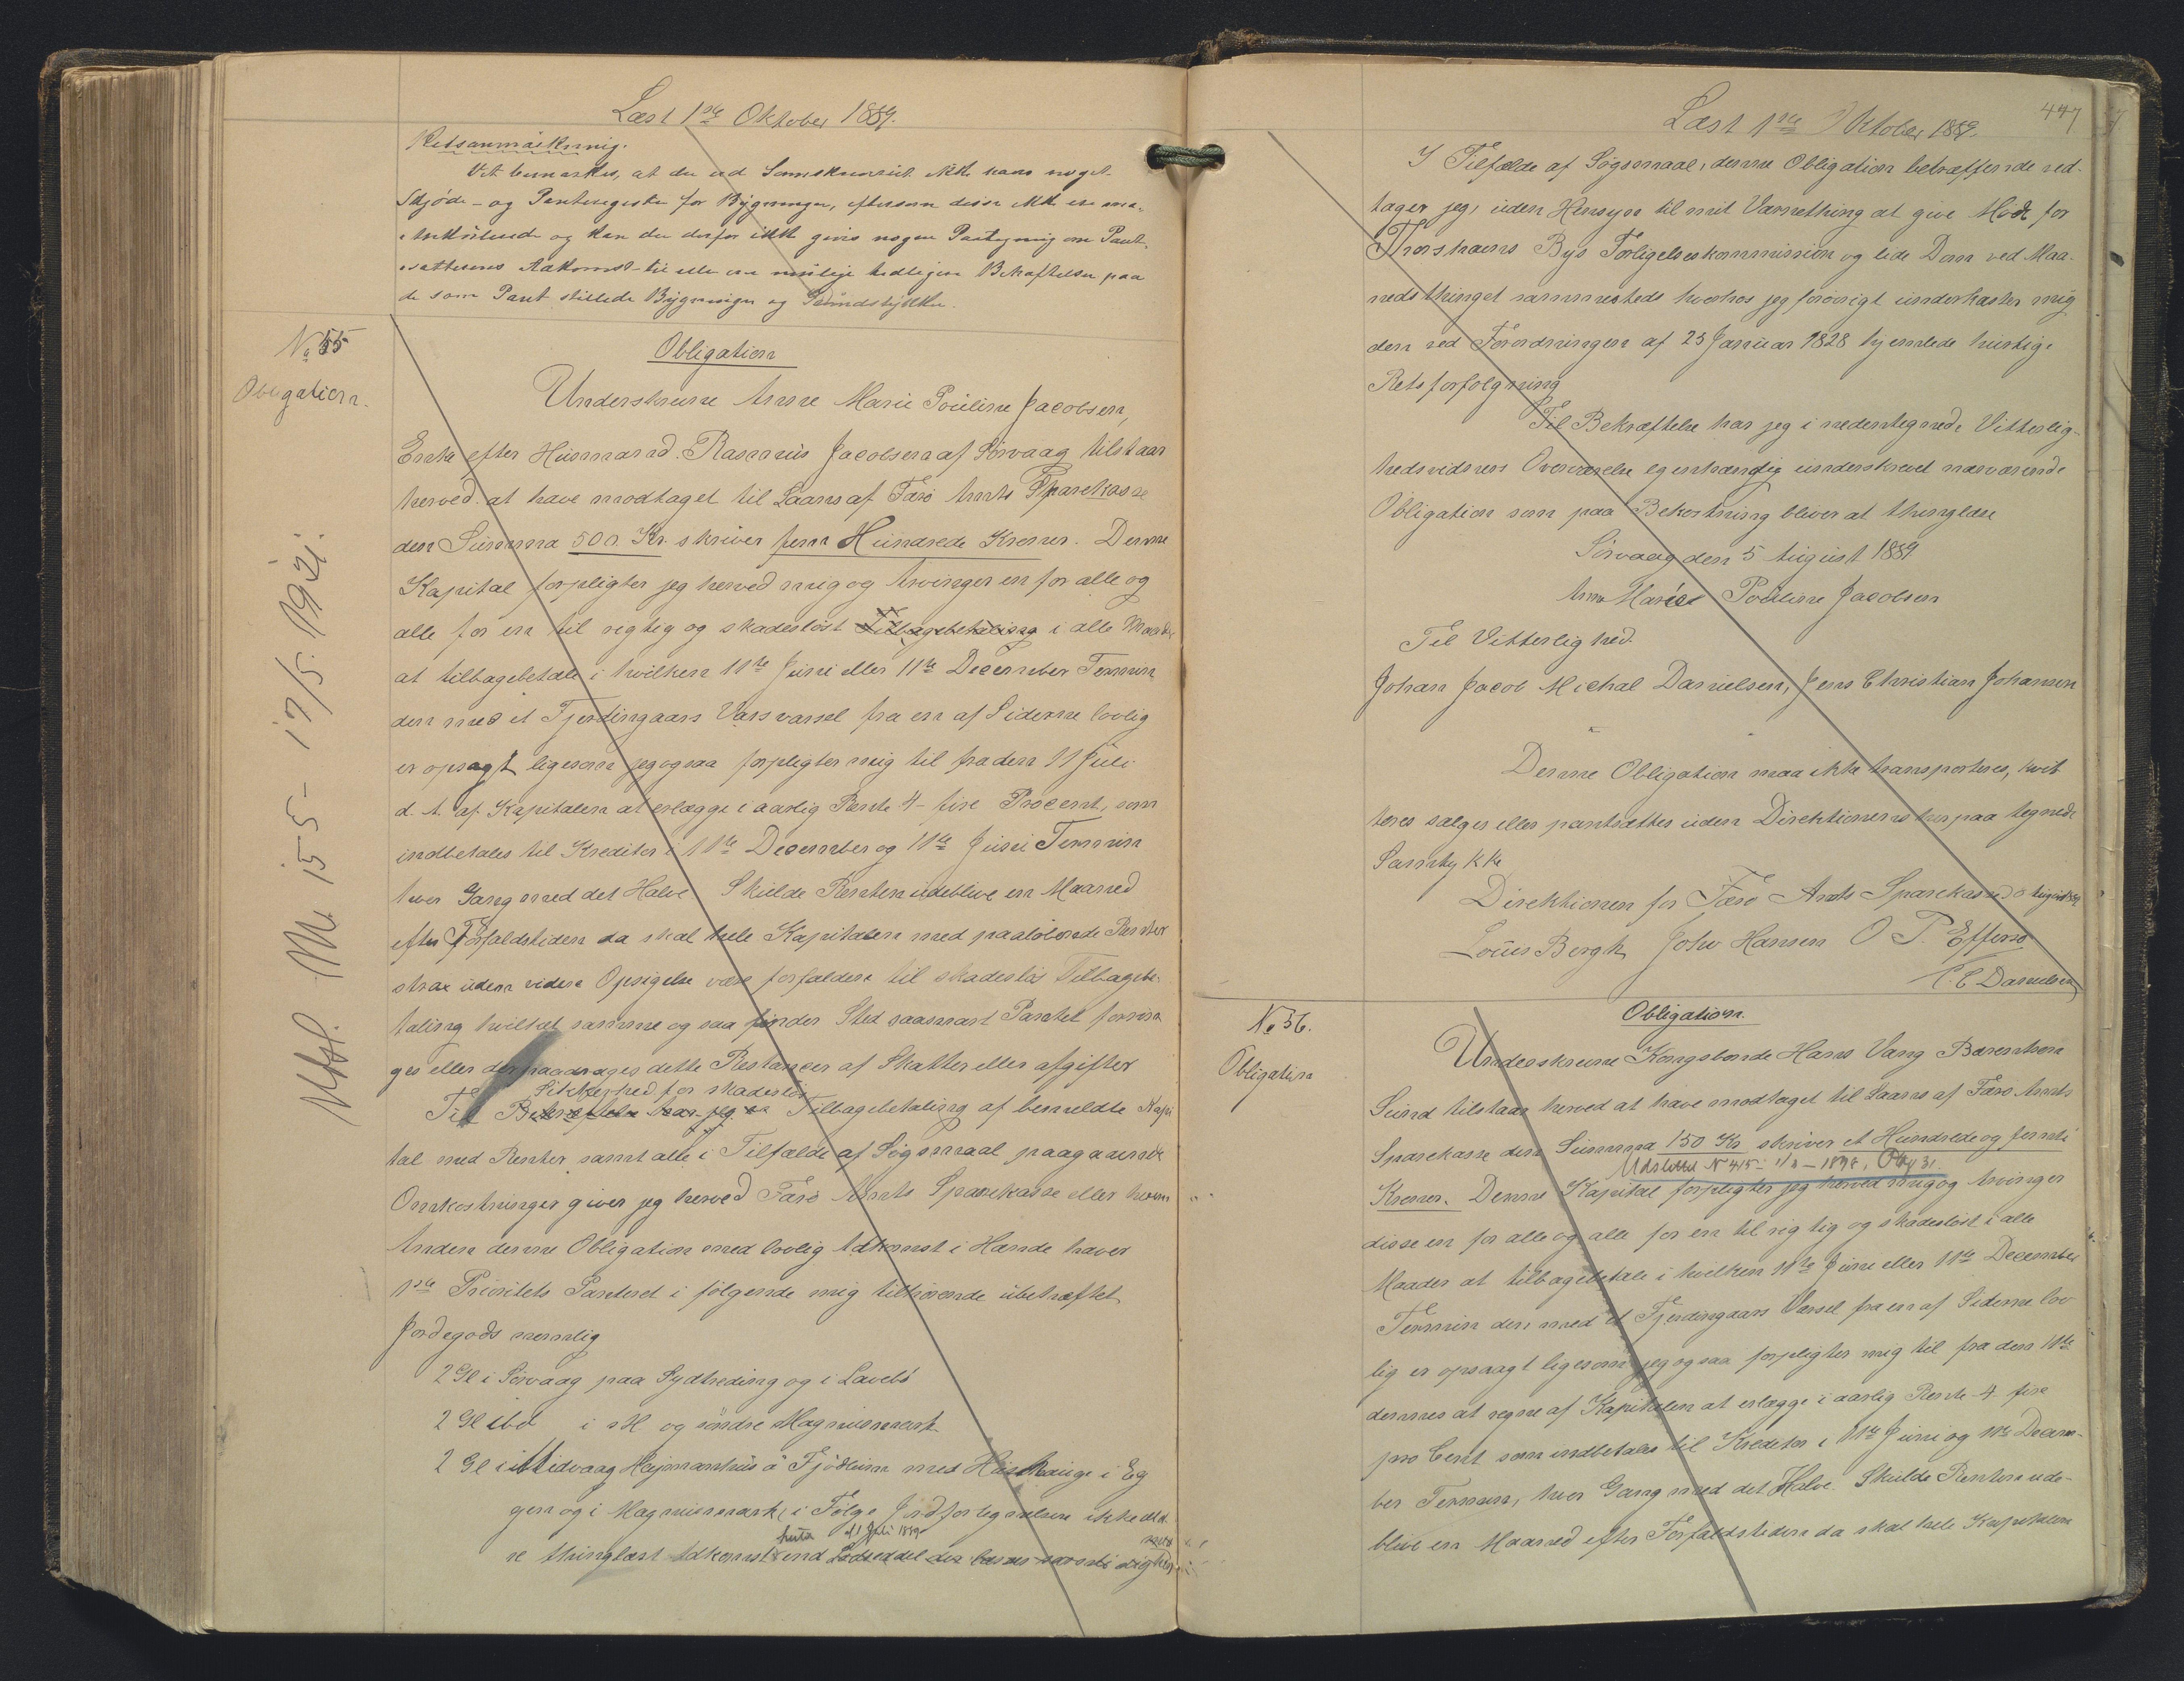 Læst 1ste Oktober 1889.
Retsanmærkning.
Det bemærkes, at der ved Sorenskriveriet ikke haves noget
Skjøde- og Panteregister for Bygninger, eftersom disse ikke ere ma-
trikulerede og kan der derfor ikke gives nogen Paategning om Pant-
sætterens Adkomst til eller om mulige tidligere Behæftelser paa
de som Pant stillede Bygninger og Grundstykker.
No 55
Obligation.
Udsl. No 155 - 17/5. 1921.
Obligation
Underskrevne Anne Marie Pouline Jacobsen,
Enke efter Husmand Rasmus Jacobsen af Sörvaag tilstaar
herved at have modtaget til Laans af Færö Amts Sparekasse
den Summa 500 Kr. skriver fem Hundrede Kroner. Denne
Kapital forpligter jeg herved mig og Arvinger en for alle og
alle for en til rigtig og skadeslöst Tilbagebetaling i alle Maader
at tilbagebetale i hvilken 11te Juni eller 11te December Termin
den med et Fjerdingaars Varsel fra en af Siderne lovlig
er opsagt ligesom jeg ogsaa forpligter mig til fra den 11 Juli
d. A. af Kapitalen at erlægge i aarlig Rente 4 - fire Procent, som
indbetales til Kreditor i 11te December og 11te Juni Termin
hver Gang med det Halve. Skulde Renten udeblive en Maaned
efter Forfaldstiden da skal hele Kapitalen med paalöbende Renter
strax uden videre Opsigelse være forfalden til skadeslös Tilbagebe-
taling hvilket samme og saa finder Sted saasnart Pantet forrin
ges eller der paadrages dette Restancer af Skatter eller afgifter
Sikkerhed for skadeslös
Til Bekræftelse har jeg Tilbagebetaling af bemeldte Kapi
tal med Renter samt alle i Tilfælde af Søgsmaal paagaaende
Omkostninger giver jeg herved Færö Amts Sparekasse eller hvem
Anden denne Obligation med lovlig Adkomst i Hænde haver
1ste Prioritets Panteret i følgende mig tilhörende ubehæftet
Jordegods nemlig
2 Gl i Sörvaag paa Sydtreding og i Lavebö
2 Gl ibd i og söndre Magnusmark
2 Gl i Midvaag Hejmanhus á Fjödlum med Huskauge i Eg
gen og i Magnusmark, i Følge Jordfortegnelsen ikke
re thinglæst Adkomst end Lodseddel
af 1 Juli 1889
447
Læst 1ste Oktober 1889.
I Tilfælde af Søgsmaal, denne Obligation betræffende ved-
tager jeg, uden Hensyn til mit Værnething at give Møde for
Thorshavns Bys Forligelseskommission og lide Dom ved Maa-
nedsthinget sammesteds hvorhos jeg forövrigt underkaster mig
den ved Forordningen af 25 Januar 1828 hjemlede hurtige
Retsforfølgning
Til Bekræftelse har jeg i nedentegnede Vitterlig-
hedsvidners Overværelse egenhændig underskrevet nærværende
Obligation som paa Bekostning bliver at thinglæse
Sörvaag den 5 August 1889
Anne Marie Pouline Jacobsen
Til Vitterlighed.
Johan Jacob Michal Danielsen, Jens Christian Johansen
Denne Obligation maa ikke transporteres, kvit
teres sælges eller pantsættes uden Direktionens herpaa tegnede
Samtykke
Direktionen for Færö Amts Sparekasse 5 August 1889
Louis Bergh John Hansen O F. Effersö
C. C Danielsen
No 56.
Obligation
Obligation.
Underskrevne Kongsbonde Hans Vang Berentsen
Sund tilstaar herved at have modtaget til Laans af Færö Amts
Sparekasse den Summa 150 Kr skriver et Hundrede og femti
Udslettet No 415 - 1898,
Kroner. Denne Kapital forpligter jeg herved mig og Arvinger
disse en for alle og alle for en til rigtig og skadeslöst i alle
Maader at tilbagebetale i hvilken 11te Juni eller 11te December
Termin den med et Fjerdingaars Varsel fra en af Siderne lov
lig er opsaagt ligesom jeg ogsaa forpligter mig til fra den 11te
dennes at regne af Kapitalen at erlægge i aarlig Rente 4 - fire
pro Cent som indbetales til Kreditor i 11te Juni og 11te Decem-
ber Termin, hver Gang med det Halve. Skulde Renten ude-
blive en Maaned efter Forfaldstiden da skal hele Kapitalen